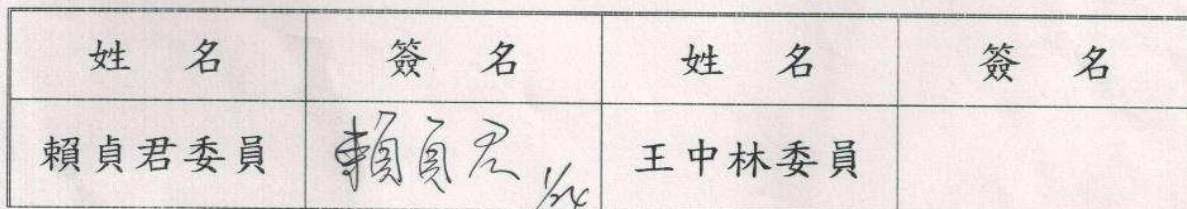 姓 名 簽 名 姓 名 簽 名
賴貞君委員 賴貞君 1/24 王中林委員